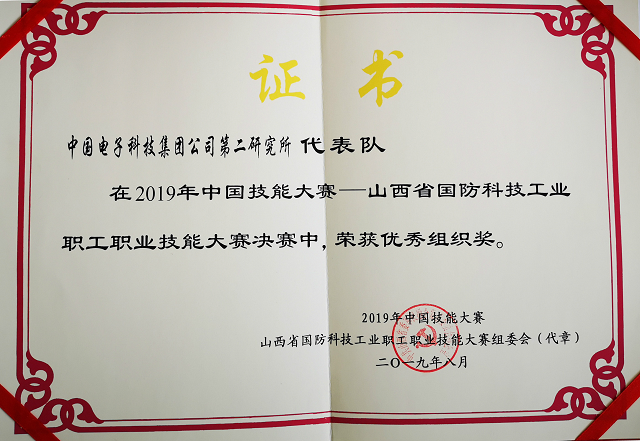 证书
中国电子科技集团公司第二研究所 代表队
在2019年中国技能大赛──山西省国防科技工业
职工职业技能大赛决赛中，荣获优秀组织奖。
2019年中国技能大赛
山西省国防科技工业职工职业技能大赛组委会（代章）
二〇一九年八月